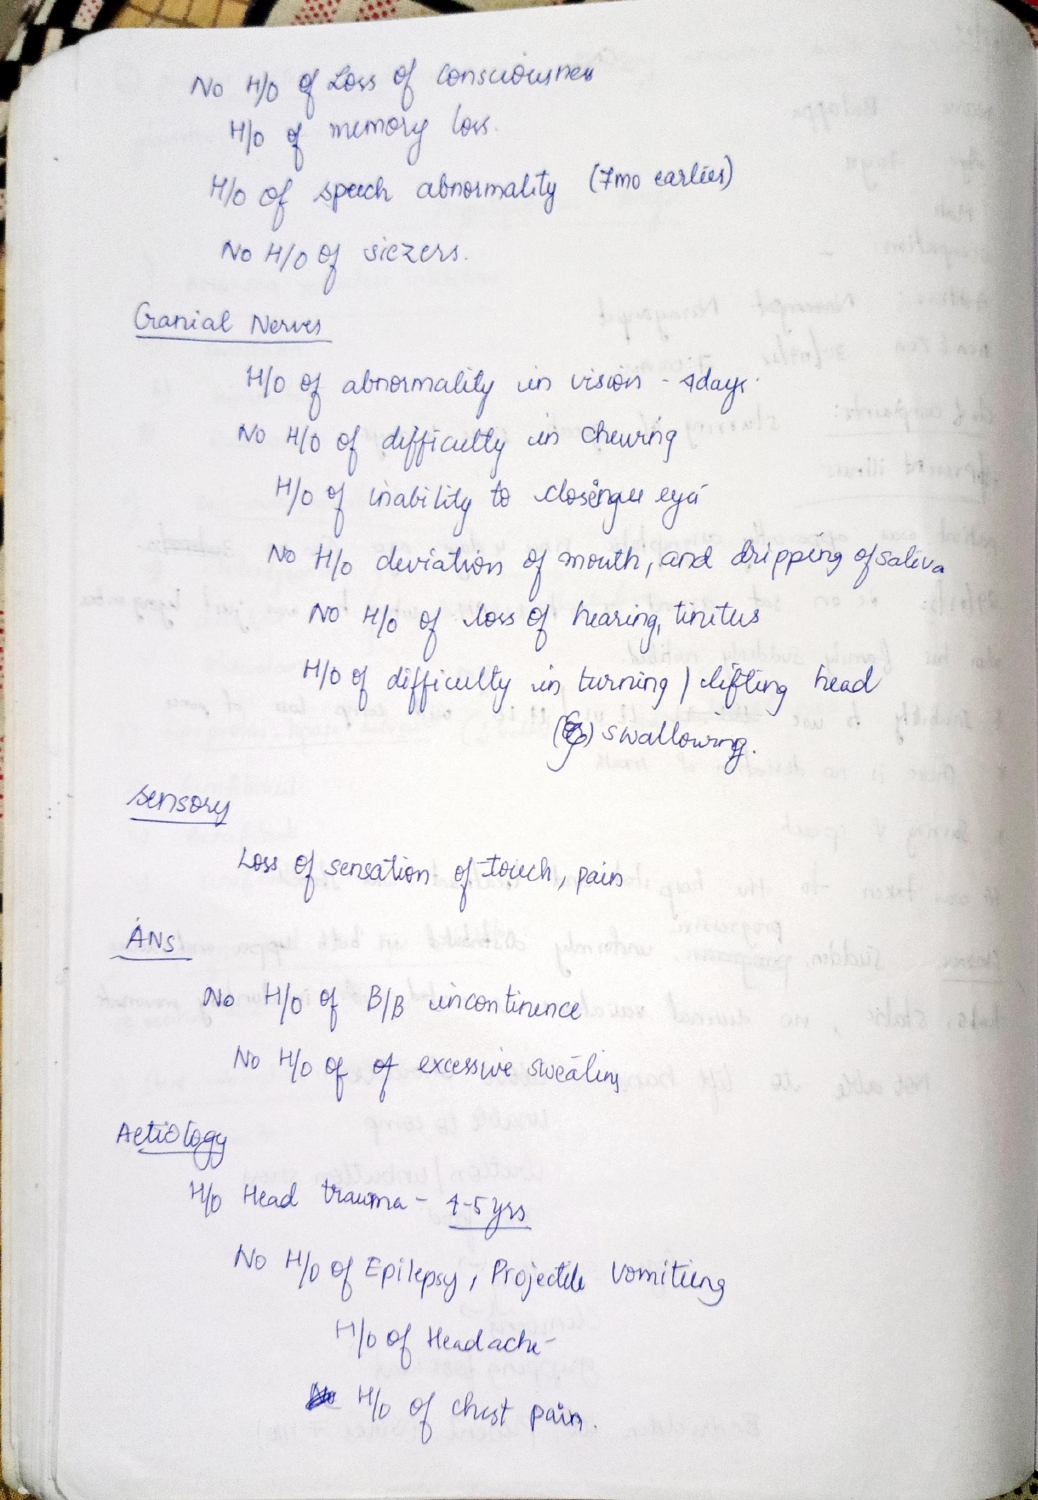 No H/O of Loss of consciousness
H/O of memory loss.
H/O of speech abnormality (7mo earlier)
No H/O of siezers.
Cranial Nerves
H/O of abnormality in vision - 4days.
No H/O of difficulty in chewing
H/O of inability to eye
No H/O deviation of mouth, and dripping of saliva
No H/O of loss of hearing, tinitus
H/O of difficulty in turning / lifting head
swallowing.
Sensory
Loss of sensation of touch, pain
ANS
No H/O of B/B incontinence
No H/O of of excessive sweating
Aetiology
H/O Head trauma - 4-5yrs
No H/O of Epilepsy, Projectile vomiting
H/O of Headache -
H/O of chest pain.